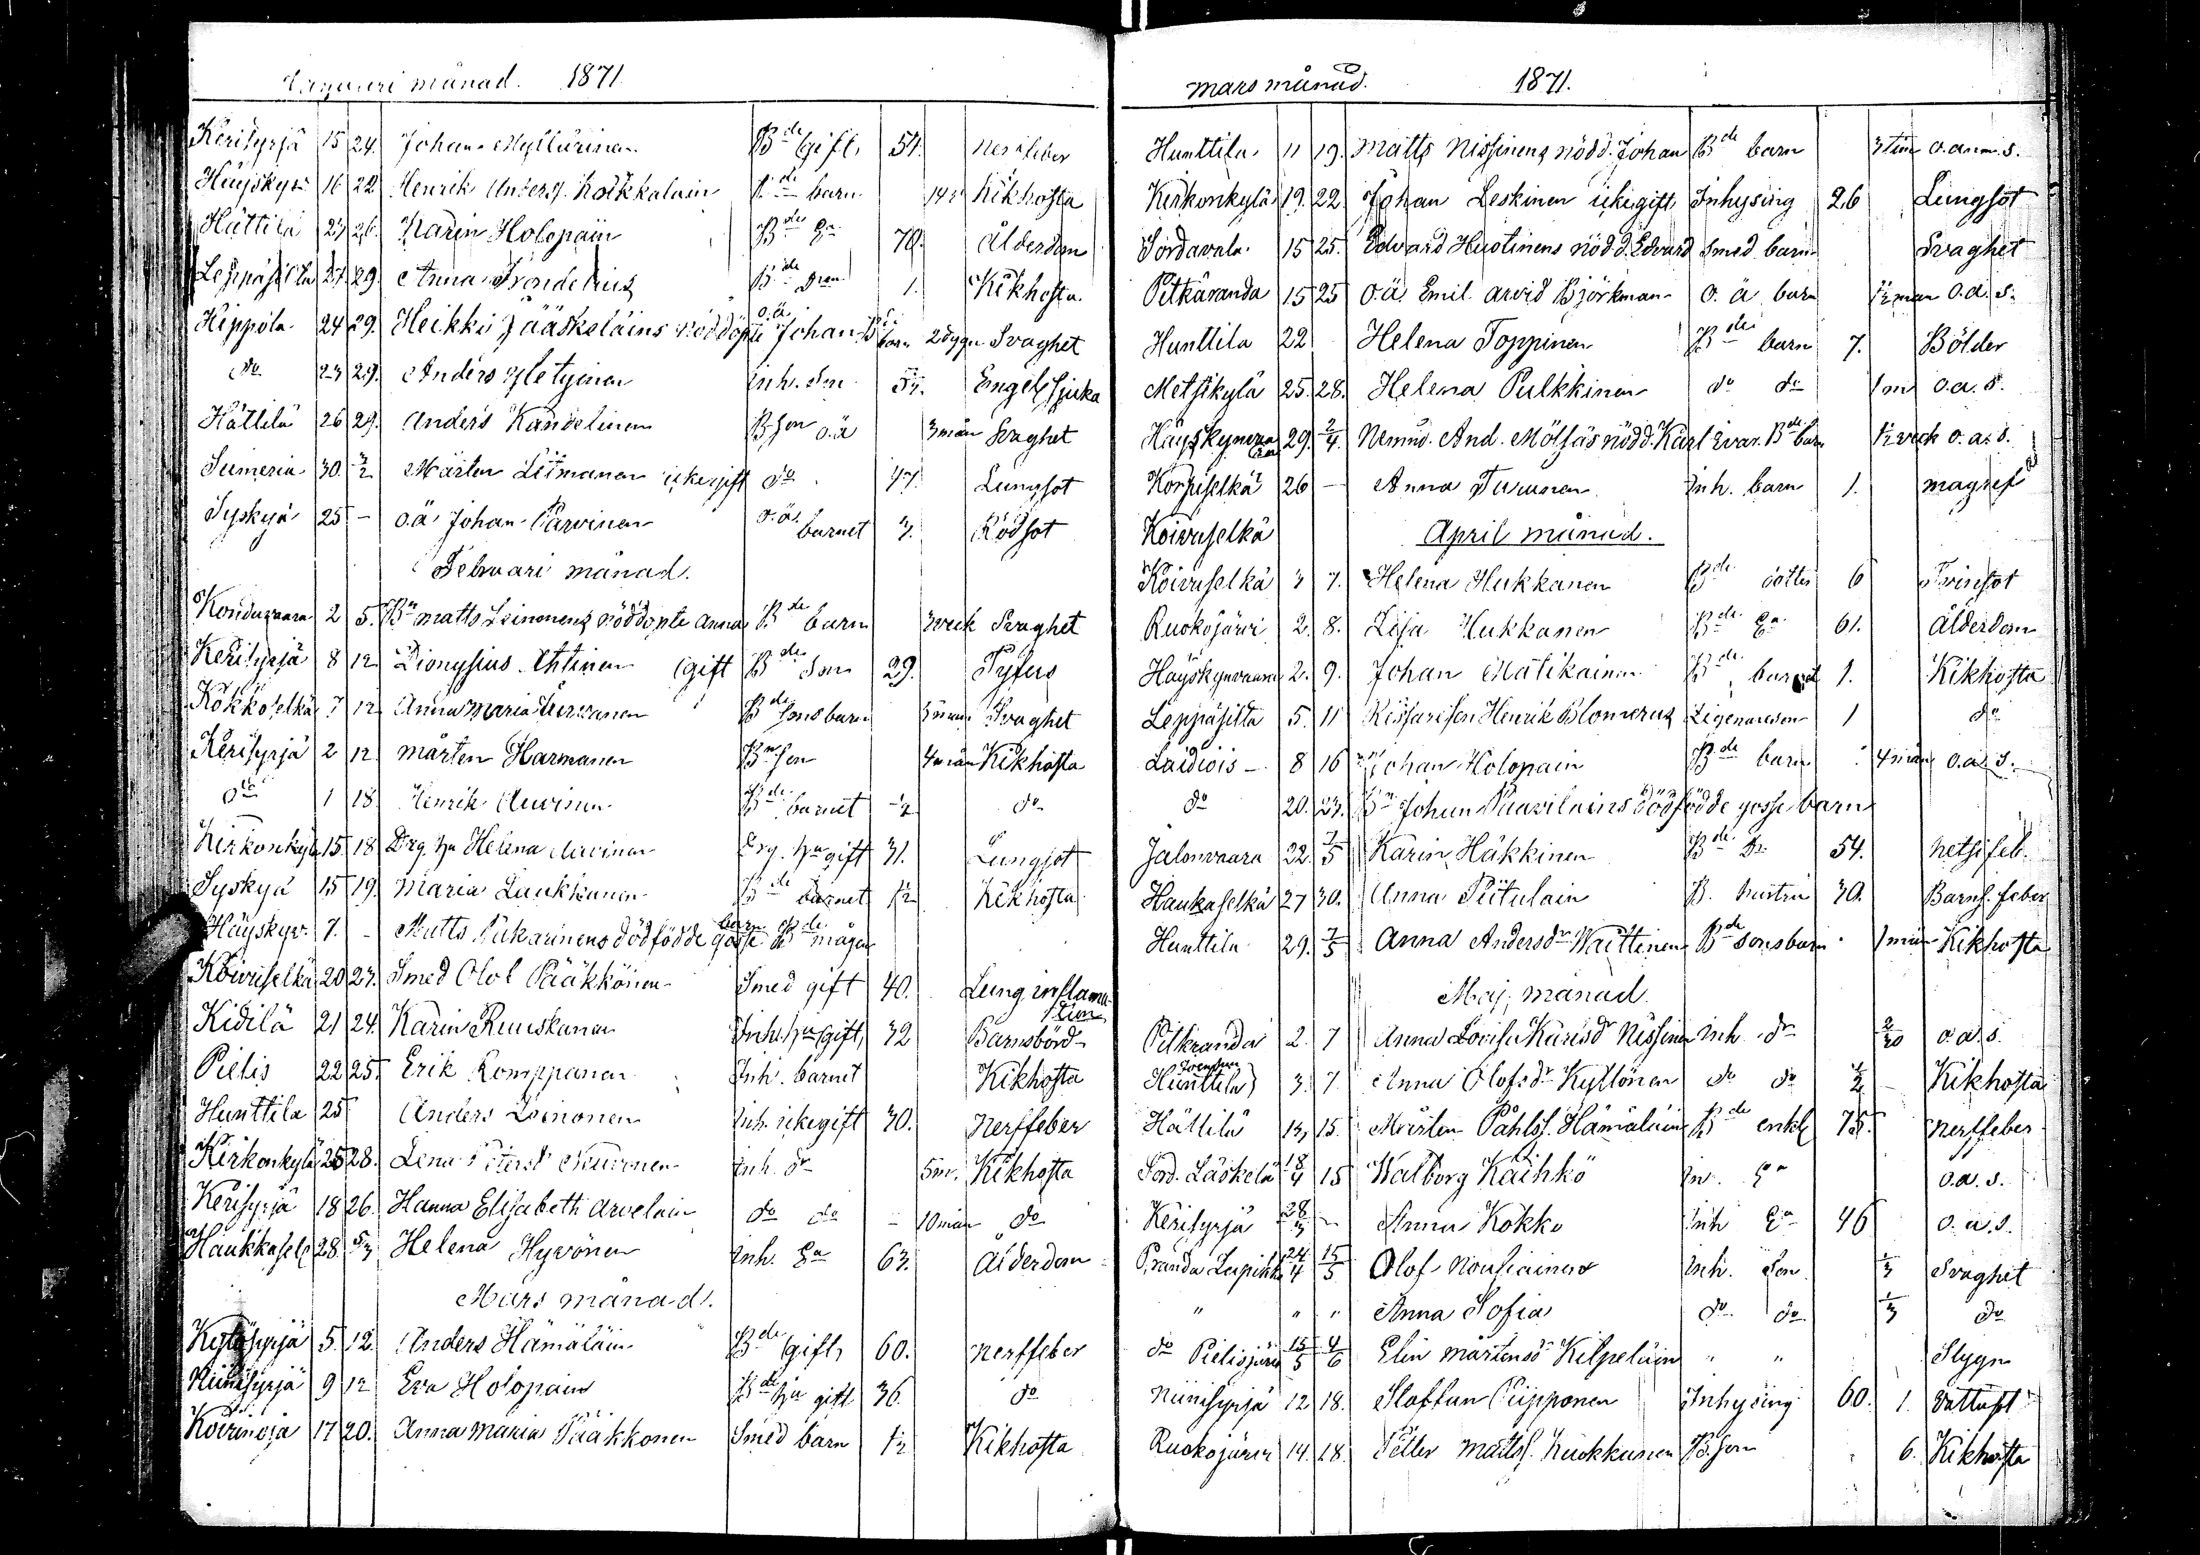 Januari månad. 1871.
Kerisyrjä 15 24. Johan Myllärinen Bde gift 54. nerffeber
Häyskyv. 16 22 Henrik Anders. Koikkalain Bde barn Kikhosta
Hättilä 23 26. Karin Holopain Bde Ea 70. Ålderdom
Leppäsilta 27. 29. Anna Frondelius Bde 1. Kikhosta
Hippola 24 29. Heikki Jääskeläins nöddöpte o.ä. Johan Bde barn 2 dygn Svaghet
do 23 29. Anders Yletyinen Inh. Son 54. Engelssjuka
Hättilä 26 29. Anders Kandelinen B.son o.ä 3 mån Svaghet
Sumeria 30. 3/2 Mårten Litmanen icke gift do 47. Lungsot
Syskyä 25 - o.ä. Johan Parvinen o.äs. barnet 3. Rödsot
Februari månad.
Konduvaara 2 5. Bn Matts Leinonens nöddöpte Anna Bde barn 3 veck Svaghet
Kerisyrjä 8 12 Dionysius Ahtinen (gift Bde Son 29. Tyfus
Kokkoselkä 7 12 Anna Maria Bde Sonsbarn 3 mån Svaghet
Kerisyrjä 2 12 Mårten Harmanen Bn Son 4 mån Kikhosta
do 1 18. Henrik Auvinen Bde barnet 1/2 do
Kirkonkylä 15 18 Drg. hu Helena Auvinen Drg. hu gift 31. Lungsot
Syskyä 15 19. Maria Luukkanen Bde barnet 1/2 Kikhosta
Häyskyv. 7. - Matts Pukarinens dödfödde gosse barn Bde mågen
Koivuselkä 20 27. Smed Olof Pääkkönen Smed gift 40. Lung inflamation
Kidilä 21 24. Karin Ruuskanen Inh. hu (gift) 32 Barnsbörd
Pielis 22 25. Erik Romppanen Inh. barnet Kikhosta
Hunttila 25 Anders Leinonen Inh. icke gift 30. Nerffeber
Kirkonkylä 25 28. Lena Petersd. Neuvonen Inh. dr 5 m. Kikhosta
Kerisyrjä 18 26. Hanna Elisabeth Arvelain do do - 10 mån do
Haukkasel. 28. 5/3 Helena Hyvönen Inh. Ea 63. Ålderdom
Mars månad.
Kytösyrjä 5. 12. Anders Hämäläin Bde (gift) 60. nerffeber
Niinisyrjä 9 12 Eva Holopain Bde hu gift 36. do
Koirinoja 17 20. Anna Maria Pääkkonen Smed barn 1/2 Kikhosta
Mars månad. 1871.
Hunttila 11 19. Matts Nissinens nödd. Johan Bde barn 3 tim o.anm.s.
Kirkonkylä 19. 22. Johan Leskinen icke gift Inhysing 26 Lungsot
Sordavala 15 25. Edvard Huotinens nödd. Edvard Smed barn Svaghet
Pitkäranda 15 25 o.ä. Emil Arvid Björkman o. ä barn 1/2 mån o.a.s.
Hunttila 22 Helena Toppinen Bde barn 7. Bölder
Metsikylä 25. 28. Helena Pulkkinen do do 1 m o.a.s.
Häyskynvaara 29. 2/4. Nämnd. And. Mölsäs nödd. Karl Ivar. Bde barn 1/2 veck o.a.s.
Korpiselkä 26 - Anna Turunen Inh. barn 1. magref
Koivuselkä April månad.
Koivuselkä 3 7. Helena Hukkanen Bde dotter 6 Tvinsot
Ruokojärvi 2. 8. Lisa Hukkanen Bde Ea 61. Ålderdom
Häyskynvaara 2. 9. Johan Matikainen Bde barnet 1. Kikhosta
Leppäsilta 5. 11 Henrik Blomerus 1 do
Läidiois - 8 16 Johan Holopain Bde barn 4 mån o.a.s.
do 20. 23. Bn Johan Paavilains dödfödde gosse barn
Jalonvaara 22. 7/5 Karin Häkkinen Bde 54. netssfeb.
Haukaselkä 27 30. Anna Piitulain B. hustru 30. Barns. feber
Hunttila 29. 7/5 Anna Andersdr Waittinen Bde sonsbarn 1 mån Kikhosta
Maj månad
Pitkranda 2. 7 Anna Lovisa Karlsdr Nissinen inh. dr 2/30 o.a.s.
Hunttila 3. 7. Anna Olofsdr Kyllönen do do 1/2 - Kikhosta
Hättilä 13, 15. Mårten Påhls. Hämäläin Bde enkl 75. nerffeber
Sord. Läskelä 18/4 15 Walborg Kaihko in. Ea o.a.s.
Kerisyrjä 28/3 Anna Kokko Inh Ea 46 o.a.s.
P.randa Leppikko 24/4 15/5 Olof Nousiainen Inh. Son 1/3 Svaghet
" " " Anna Sofia do do 1/3 do
do Pielisjärvi 15/5 4/6 Elin Mårtensdr Kilpeläin " " Slygn
Niinisyrjä 12 18. Staffan Piipponen Inhysing 60. 1. vattusot
Ruokojärvi 14. 18. Petter Matts. Kuokkanen B.son 6. Kikhosta